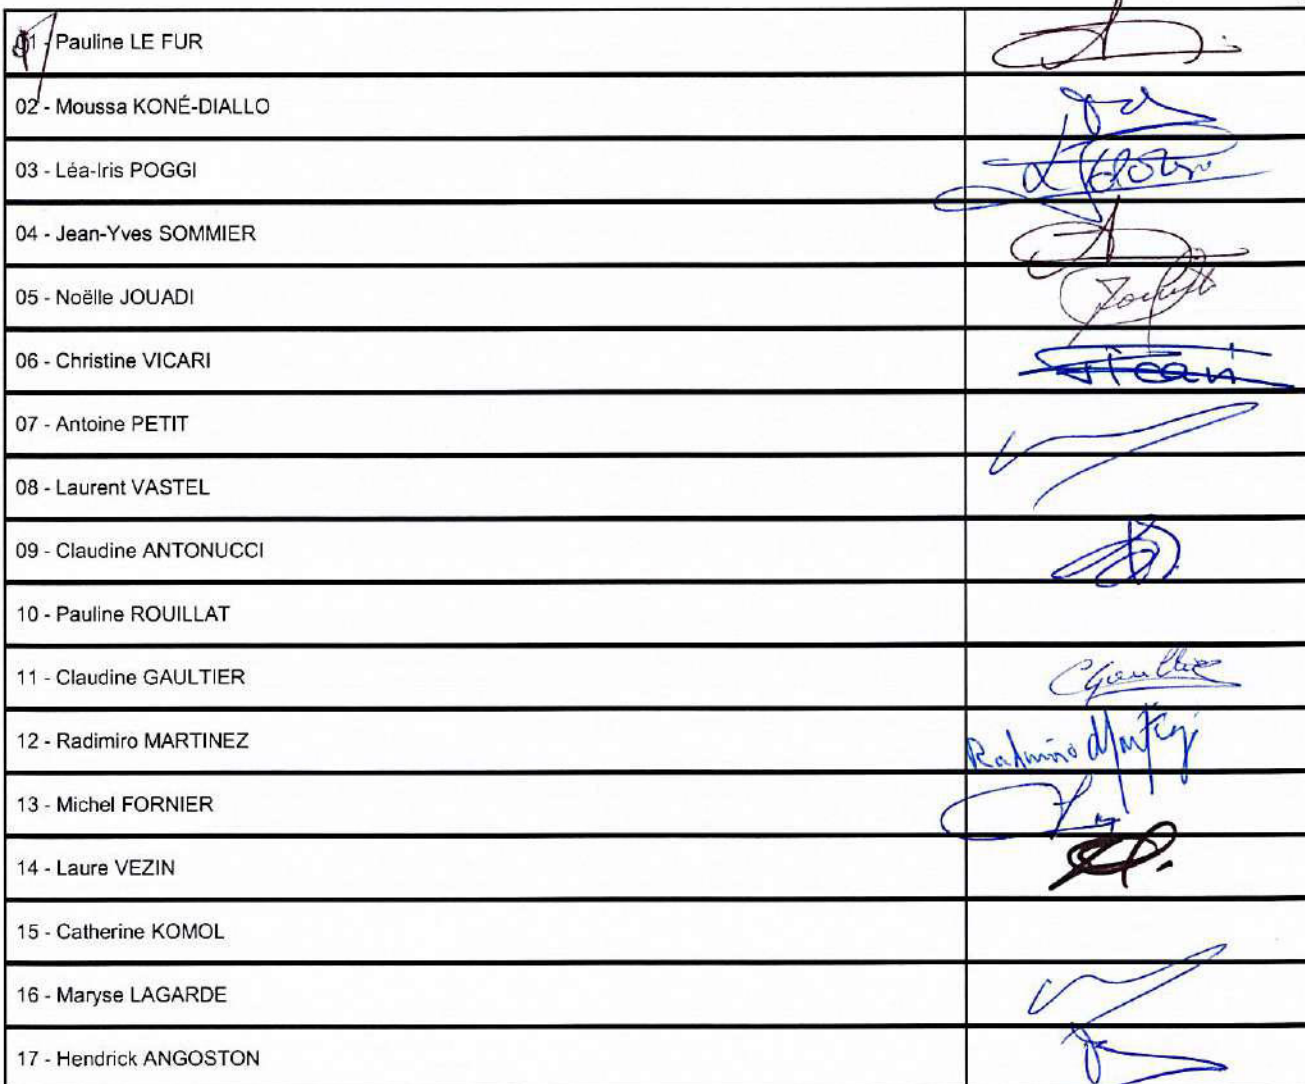 01 - Pauline LE FUR
02 - Moussa KONÉ-DIALLO
03 - Léa-Iris POGGI
04 - Jean-Yves SOMMIER
05 - Noëlle JOUADI
06 - Christine VICARI
07 - Antoine PETIT
08 - Laurent VASTEL
09 - Claudine ANTONUCCI
10 - Pauline ROUILLAT
11 - Claudine GAULTIER
12 - Radimiro MARTINEZ
13 - Michel FORNIER
14 - Laure VEZIN
15 - Catherine KOMOL
16 - Maryse LAGARDE
17 - Hendrick ANGOSTON